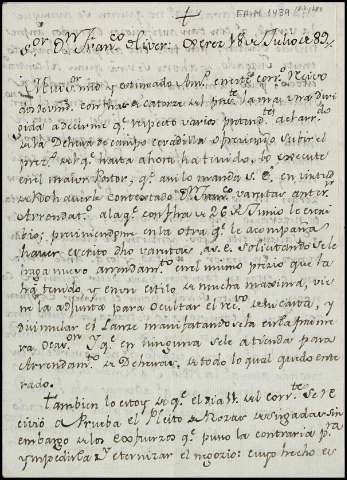 EAHM 1439
Sor Dn Franco Oliver. Xerez 18 de Julio de 89.
Mui sor mio y estimado Amo en este corro Recivo
dos de vmd. con fhas de catorze del preste la una
gida a decirme qe respecto varios pretendtes al arrdo
de la Dehesa de campo cerradilla a Prevenido Subir el
precio del qe hasta ahora ha tenido, lo execute
en el maior Postor, qe asi lo manda S. E. en virtud
de haverle contextado Dn Franco Vanitas anter
Arrendator a la qe con fha de 26 de Junio le escri
bio; previniendome en la otra qe le acompaña
haver escrito dho Vanitas, a S. E. solicitando se le
haga nuevo arrendamto en el mismo precio que la
ha tenido, y en un estilo de mucha maxima, vie
ne la adjunta para ocultar el de su carta, y
disimular el Lanze manifestandosela en la prime
ra ocason y qe en ninguna se le atienda para
Arrendamto de Dehesas, de todo lo qual quedo ente
rado.
Tambien lo estoy de qe el dia 11 del corrte se Re
civió a Prueba el Pleito de Rozas de sin
embargo de los exfuerzos qe puso la contraria pte
y impedirla y eternizar el negozio; cuyo hecho es